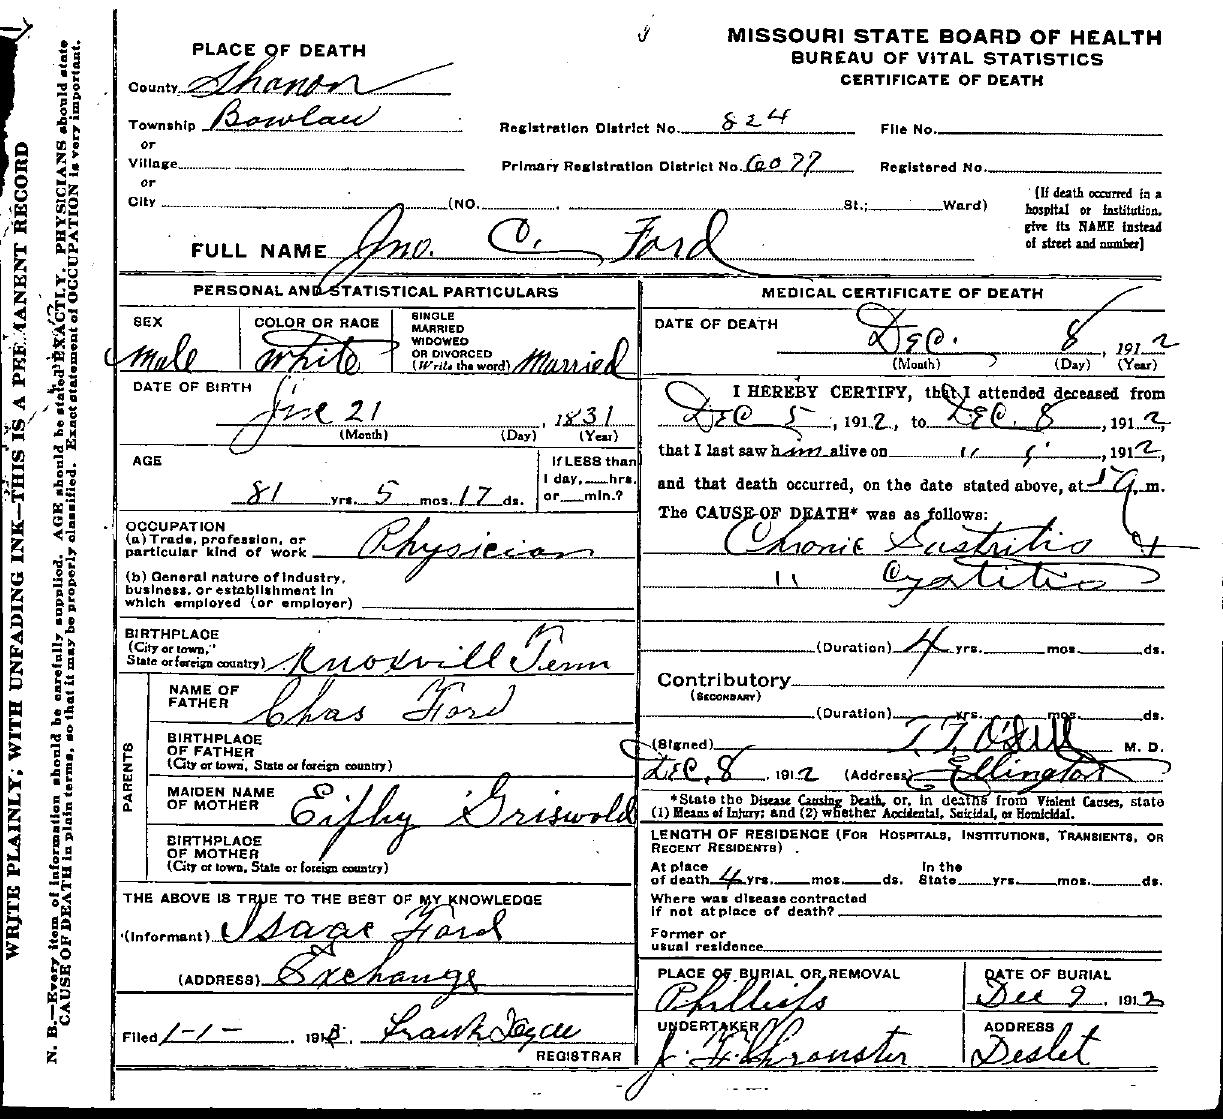 MISSOURI STATE BOARD OF HEALTH
BUREAU OF VITAL STATISTICS
CERTIFICATE OF DEATH
PLACE OF DEATH
County Shanon
Township Bowlan
or
Village
or
City (NO. St.; Ward)
Registration District No. 824 File No.
Primary Registration District No. 6077 Registered No.
(If death occurred in a
hospital or institution,
give its NAME instead
of street and number)
FULL NAME Jno. C. Ford
PERSONAL AND STATISTICAL PARTICULARS
SEX
Male
COLOR OR RACE
White
SINGLE
MARRIED
WIDOWED
OR DIVORCED
(Write the word) Married
DATE OF BIRTH
June 21, 1831
(Month) (Day) (Year)
AGE
81 yrs. 5 mos. 17 ds.
If LESS than
1 day, hrs.
or min.?
OCCUPATION
(a) Trade, profession, or
particular kind of work Physician
(b) General nature of industry,
business, or establishment in
which employed (or employer)
BIRTHPLACE
(City or town,
State or foreign country) Knoxvill Tenn
PARENTS
NAME OF
FATHER Chas Ford
BIRTHPLACE
OF FATHER
(City or town, State or foreign country)
MAIDEN NAME
OF MOTHER Eiphy Griswold
BIRTHPLACE
OF MOTHER
(City or town, State or foreign country)
THE ABOVE IS TRUE TO THE BEST OF MY KNOWLEDGE
(Informant) Isaac Ford
(ADDRESS) Exchange
Filed 1-1-, 1913. Frank
REGISTRAR
MEDICAL CERTIFICATE OF DEATH
DATE OF DEATH
Dec. 8, 1912
(Month) (Day) (Year)
I HEREBY CERTIFY, that I attended deceased from
Dec 5, 1912, to Dec. 8, 1912,
that I last saw him alive on " 8, 1912,
and that death occurred, on the date stated above, at 5 a.m.
The CAUSE OF DEATH* was as follows:
Chronic Gastritis &
" Cystitis
(Duration) 4 yrs. mos. ds.
Contributory
(SECONDARY)
(Duration) yrs. mos. ds.
(Signed) T. T. O'Dell M. D.
Dec. 8, 1912 (Address) Ellington
*State the Disease Causing Death, or, in deaths from Violent Causes, state
(1) Means of Injury; and (2) whether Accidental, Suicidal, or Homicidal.
LENGTH OF RESIDENCE (FOR HOSPITALS, INSTITUTIONS, TRANSIENTS, OR
RECENT RESIDENTS).
At place In the
of death 4 yrs. mos. ds. State yrs. mos. ds.
Where was disease contracted
if not at place of death?
Former or
usual residence
PLACE OF BURIAL OR REMOVAL
Phillips
DATE OF BURIAL
Dec 9, 1912
UNDERTAKER
ADDRESS
Deslet
WRITE PLAINLY, WITH UNFADING INK—THIS IS A PERMANENT RECORD
N. B.—Every item of information should be carefully supplied. AGE should be stated EXACTLY. PHYSICIANS should state
CAUSE OF DEATH in plain terms, so that it may be properly classified. Exact statement of OCCUPATION is very important.